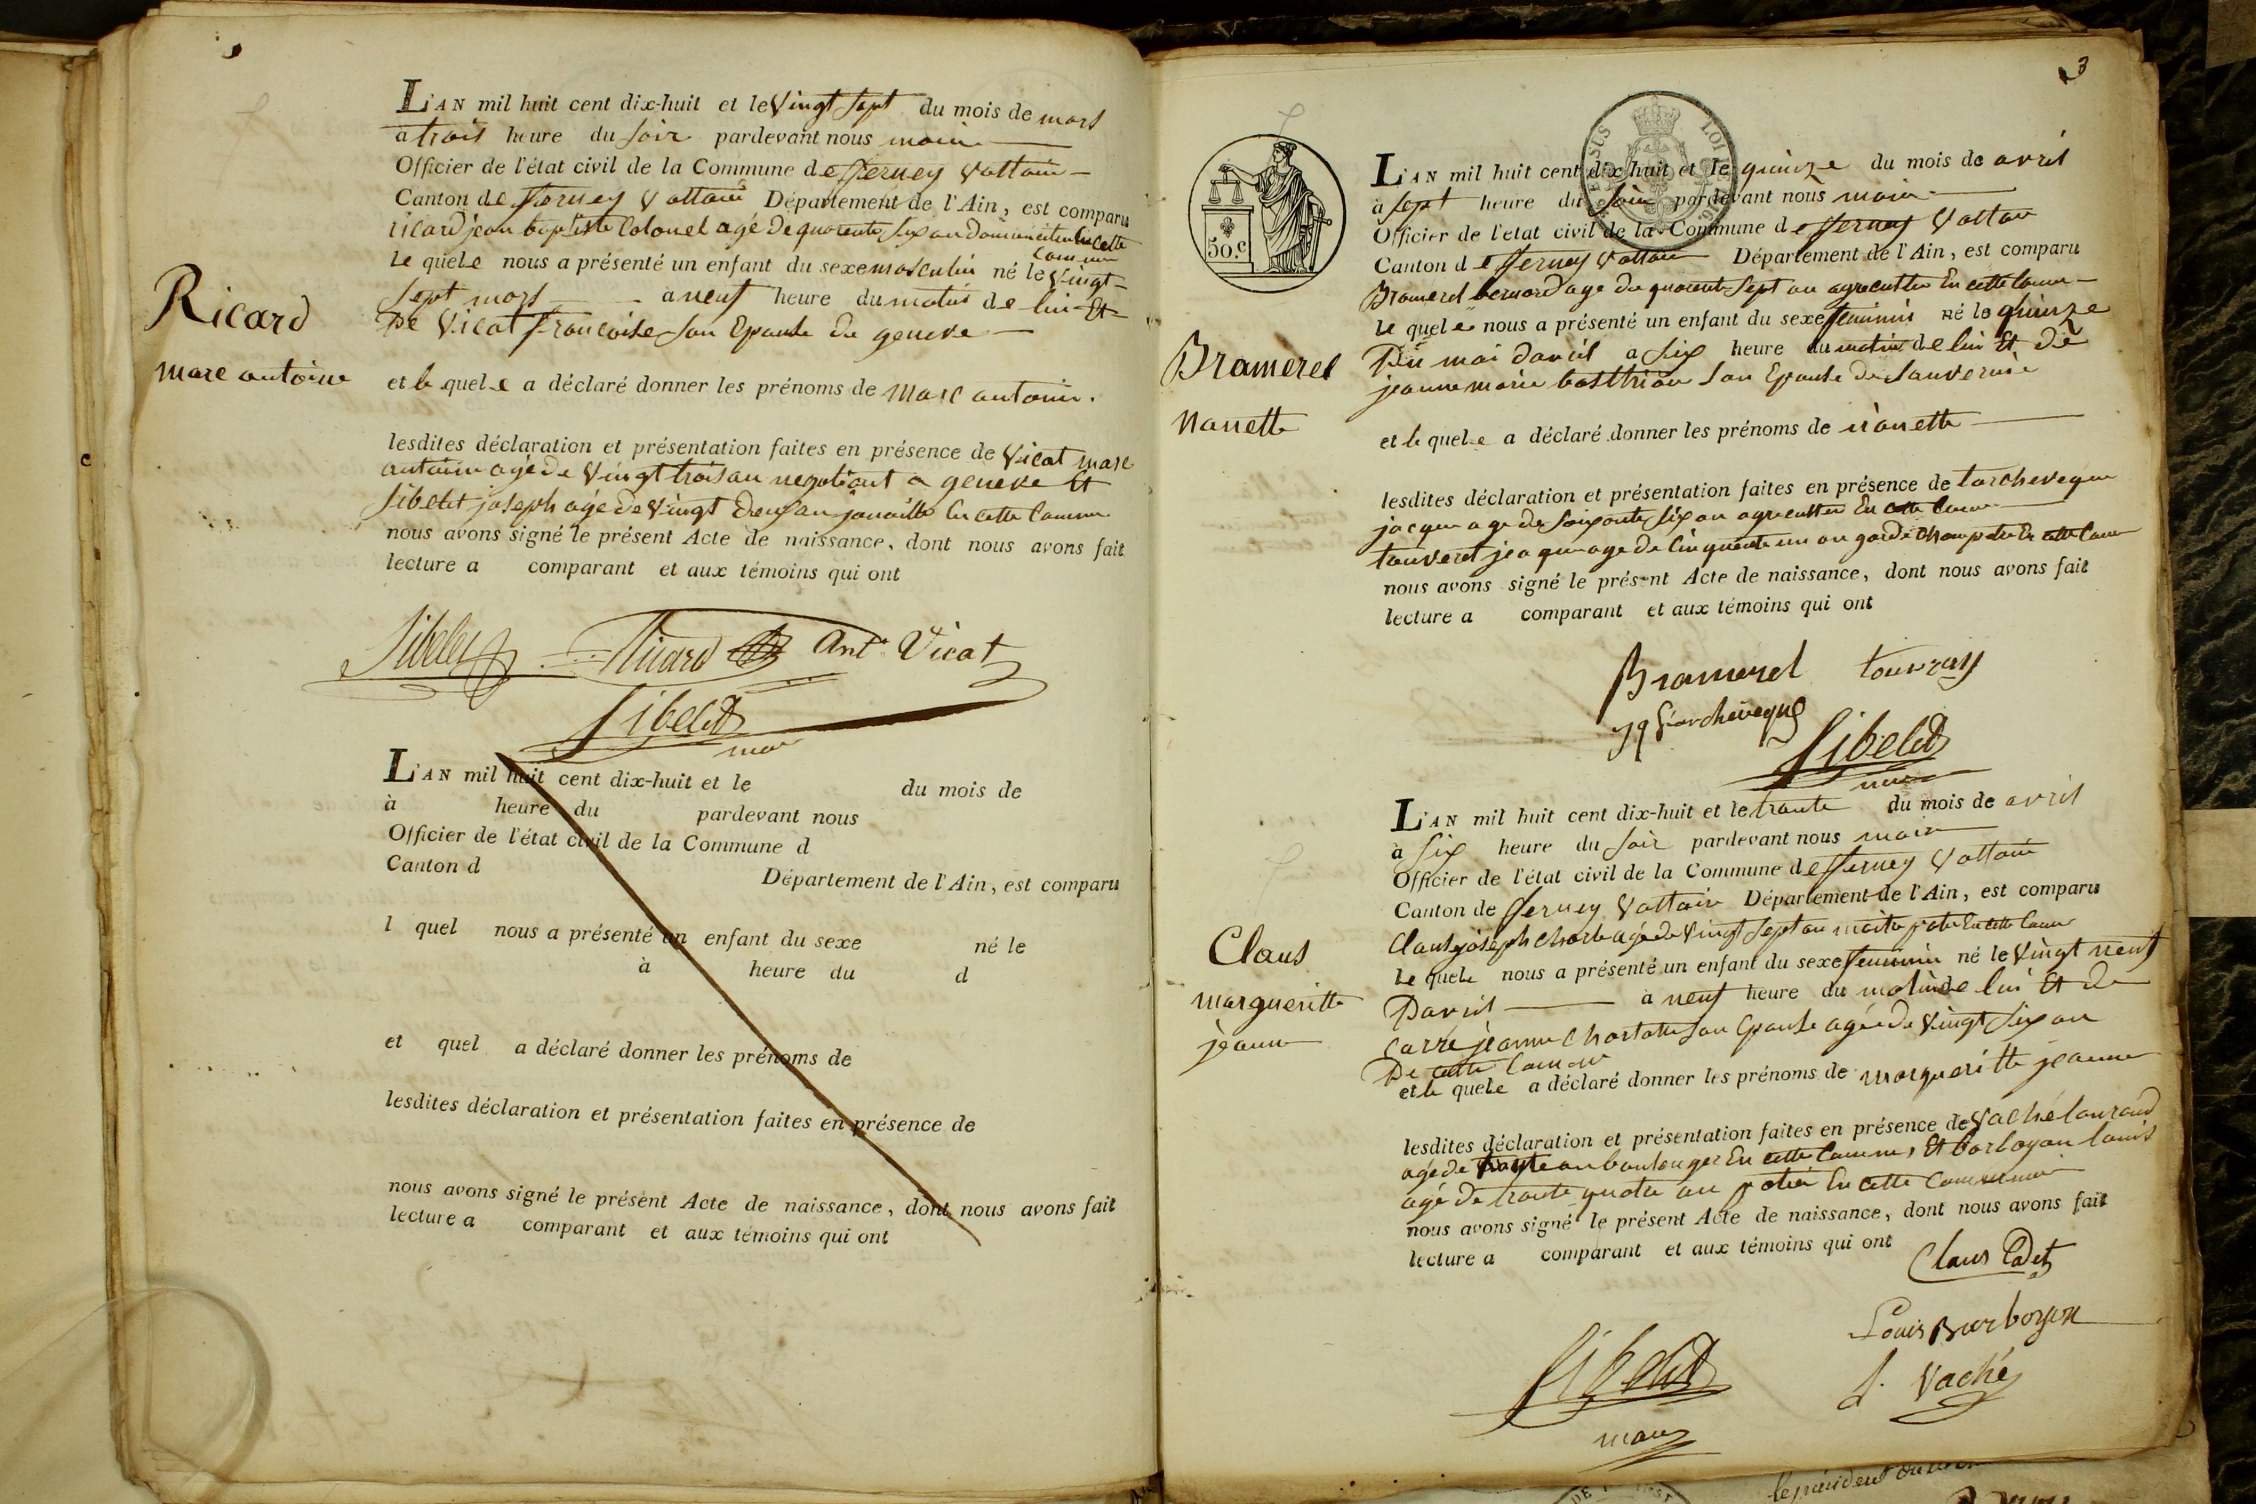 L'AN mil huit cent dix-huit et le Vingt Sept du mois de mars
a trois heure du soir pardevant nous maire
Officier de l'état civil de la Commune de fferney Voltaire
Canton de fferney Voltaire Département de l'Ain, est comparu
ricard jean baptiste Colonel agé de quarente six an domicilier En Cette
Commune
le quele nous a présenté un enfant du sexe masculin né le Vingt
Sept mars a neuf heure du matin de lui Et
De Vicat françoise son Epouse de geneve
Ricard
marc antoine
et le quele a déclaré donner les prénoms de Marc antoine.
lesdites déclaration et présentation faites en présence de Vicat marc
antoine agé de Vingt trois an negotiant a geneve Et
Sibelet joseph agé de Vingt Deux an En cette Commune
nous avons signé le présent Acte de naissance, dont nous avons fait
lecture a comparant et aux témoins qui ont
Sibelet Ricard Ant. Vicat
Sibelet
maire
L'AN mil huit cent dix-huit et le du mois de
à heure du pardevant nous
Officier de l'état civil de la Commune d
Canton d Département de l'Ain, est comparu
l quel nous a présenté un enfant du sexe né le
à heure du d
et quel a déclaré donner les prénoms de
lesdites déclaration et présentation faites en présence de
nous avons signé le présent Acte de naissance, dont nous avons fait
lecture a comparant et aux témoins qui ont
3
50.c
L'AN mil huit cent dix-huit et le quinze du mois de avril
à Sept heure du Soir pardevant nous maire
Officier de l'etat civil de la Commune de fferney Voltaire
Canton de fferney Voltaire Département de l'Ain, est comparu
Bramerel bernard age de quarente Sept an agricultier En cette Commune
le quele nous a présenté un enfant du sexe feminin né le quinze
Du moi davril a Six heure du matin de lui Et de
jeanne marie son Epouse de Sauvernie
Bramerel
Nanette
et le quele a déclaré donner les prénoms de nanette
lesdites déclaration et présentation faites en présence de Larcheveque
jacque age de Soixante Six an agricultier En cette Commune
jacque age de Cinquente un an garde Champetre En cette Commune
nous avons signé le présent Acte de naissance, dont nous avons fait
lecture a comparant et aux témoins qui ont
Bramerel
Jq Larcheveque
Sibelet
maire
L'AN mil huit cent dix-huit et le trante du mois de avril
à Six heure du Soir pardevant nous maire
Officier de l'état civil de la Commune de fferney Voltaire
Canton de fferney Voltaire Département de l'Ain, est comparu
Claus joseph Charle agé de Vingt Sept an En cette Commune
le quele nous a présenté un enfant du sexe feminin né le Vingt neuf
Davril a neuf heure du matin de lui Et De
Carré jeanne Charlotte son Epouse agée de Vingt Six an
De cette Commune
Claus
margueritte
jeanne
et le quele a déclaré donner les prénoms de margueritte jeanne
lesdites déclaration et présentation faites en présence de Vaché
agé de an boulenger En cette Commune, Et barboyon louis
agé De trante quatre an potier En cette Commune
nous avons signé le présent Acte de naissance, dont nous avons fait
lecture a comparant et aux témoins qui ont
Claus Cadet
Louis Barboyon
Sibelet
L. Vaché
maire